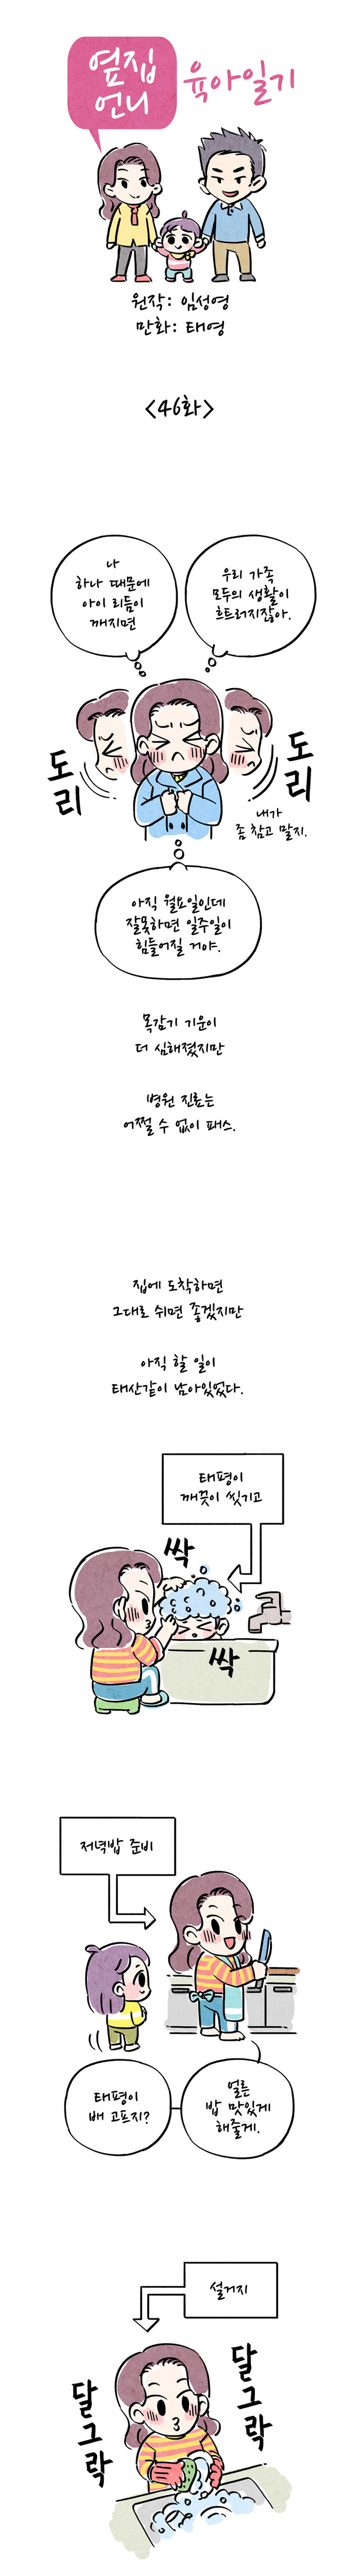 옆집
언니
육아일기
원작: 임성영
만화: 태영
<46화>
나
하나 때문에
아이 리듬이
깨지면
우리 가족
모두의 생활이
흐트러지잖아.
도
리
도
리
내가
좀 참고 말지.
아직 월요일인데
잘못하면 일주일이
힘들어질 거야.
목감기 기운이
더 심해졌지만
병원 진료는
어쩔 수 없이 패스.
집에 도착하면
그대로 쉬면 좋겠지만
아직 할 일이
태산같이 남아있었다.
태평이
깨끗이 씻기고
싹
싹
저녁밥 준비
태평이
배 고프지?
얼른
밥 맛있게
해줄게.
설거지
달
그
락
달
그
락